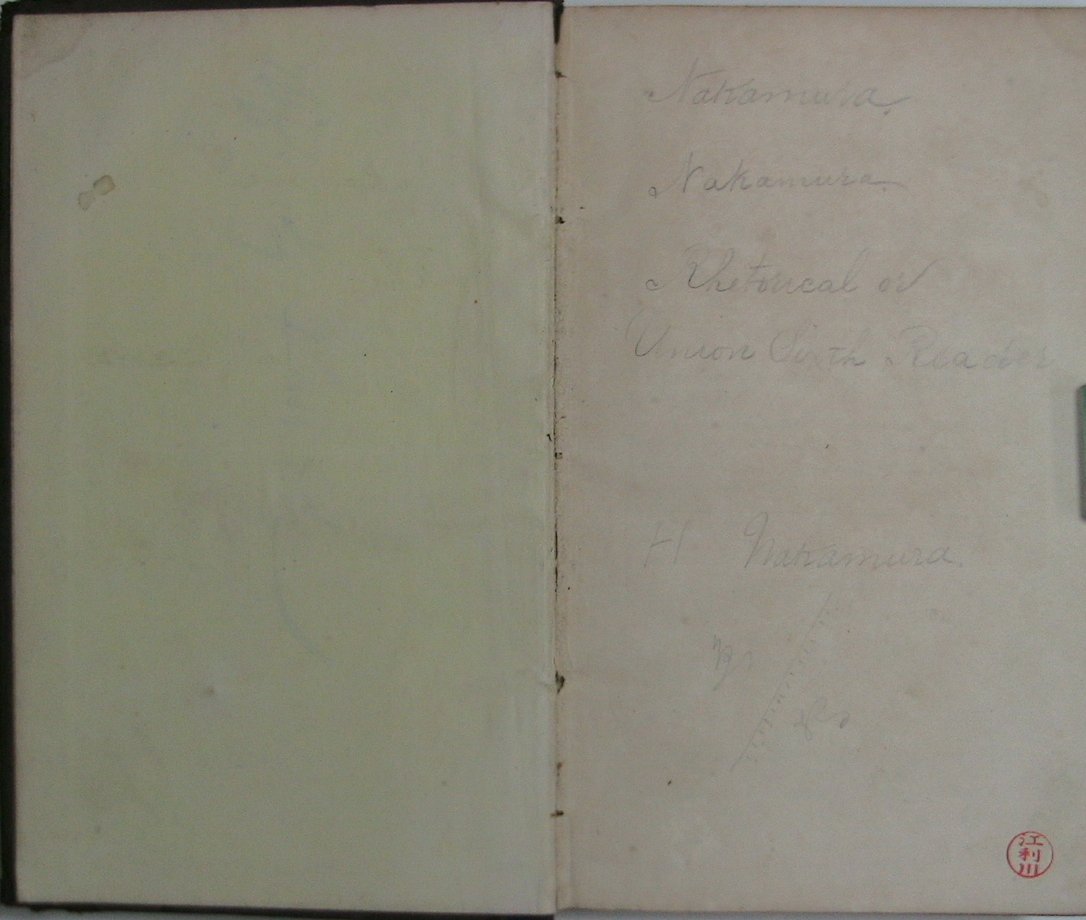 Nakamura.
Nakamura
Rhetorical or
Union Sixth Reader
H Nakamura
江利川